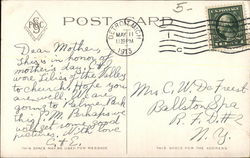 POST CARD
5-
MAY 11
1:19 PM
1913
Dear Mother,
This is in honor of
mothers day. I
wore Lilies of the Valley
to church. Hope you
are well. We are
going to Palmer Park
this P.M. Perhaps we
will get some good
pictures. With love
Mrs C. W. DeForest
Ballston Spa
R. F. D. # 2
N. Y.
THIS SPACE MAY BE USED FOR MESSAGE
THIS SPACE FOR ADDRESS ONLY